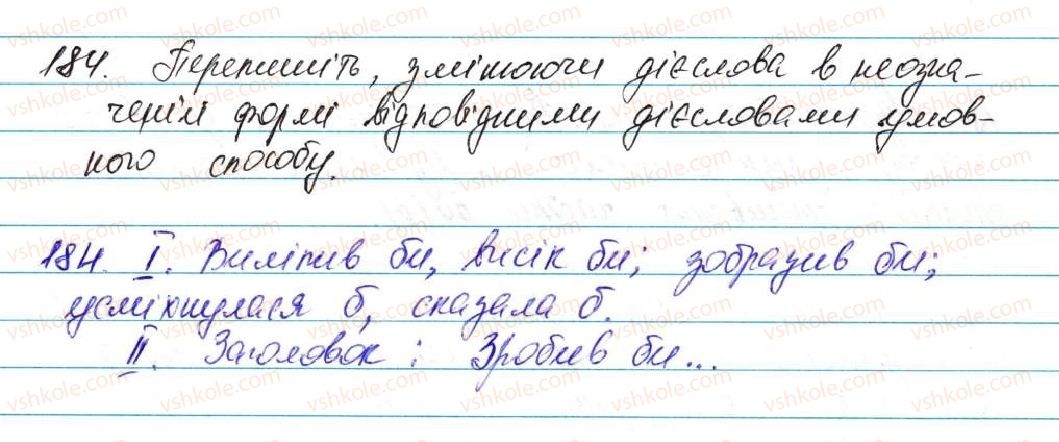 184. Перепишіть, змінюючи дієслова в неозна-
ченій формі відповідними дієсловами умов-
ного способу.
184. I. Виліпив би, висік би; зобразив би;
усміхнулася б, сказала б.
II. Заголовок: Зробив би...